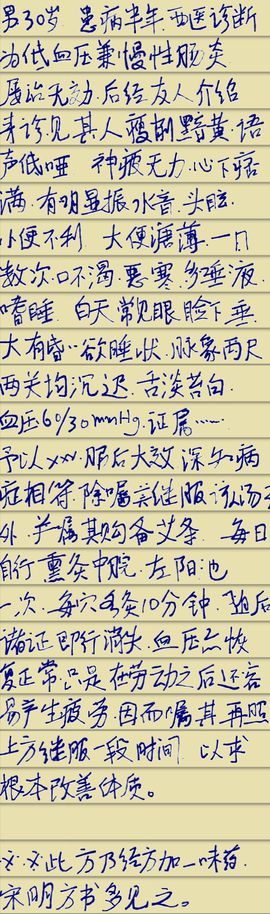 男30岁 患病半年.西医诊断
为低血压兼慢性肠炎
屡治无效.后经友人介绍
来诊见其人瘦削黯黄.语
声低哑 神疲无力.心下痞
满.有明显振水音.头眩.
小便不利 大便溏薄.一日
数次.口不渴 恶寒.多唾液.
嗜睡. 白天常见眼睑下垂
大有昏昏欲睡状.脉象两尺
两关均沉迟.舌淡苔白.
血压60/30mmHg.证属……
予以xxx.服后大效 深知病
症相符.除嘱其继服该汤
外.并属其购备艾条. 每日
自行熏灸中脘.左阳池
一次.每穴各灸10分钟.随后
诸证即行消失.血压亦恢
复正常.只是在劳动之后还容
易产生疲劳.因而嘱其再照
上方继服一段时间 以求
根本改善体质。
※.※此方乃经方加一味药.
宋明方书多见之。